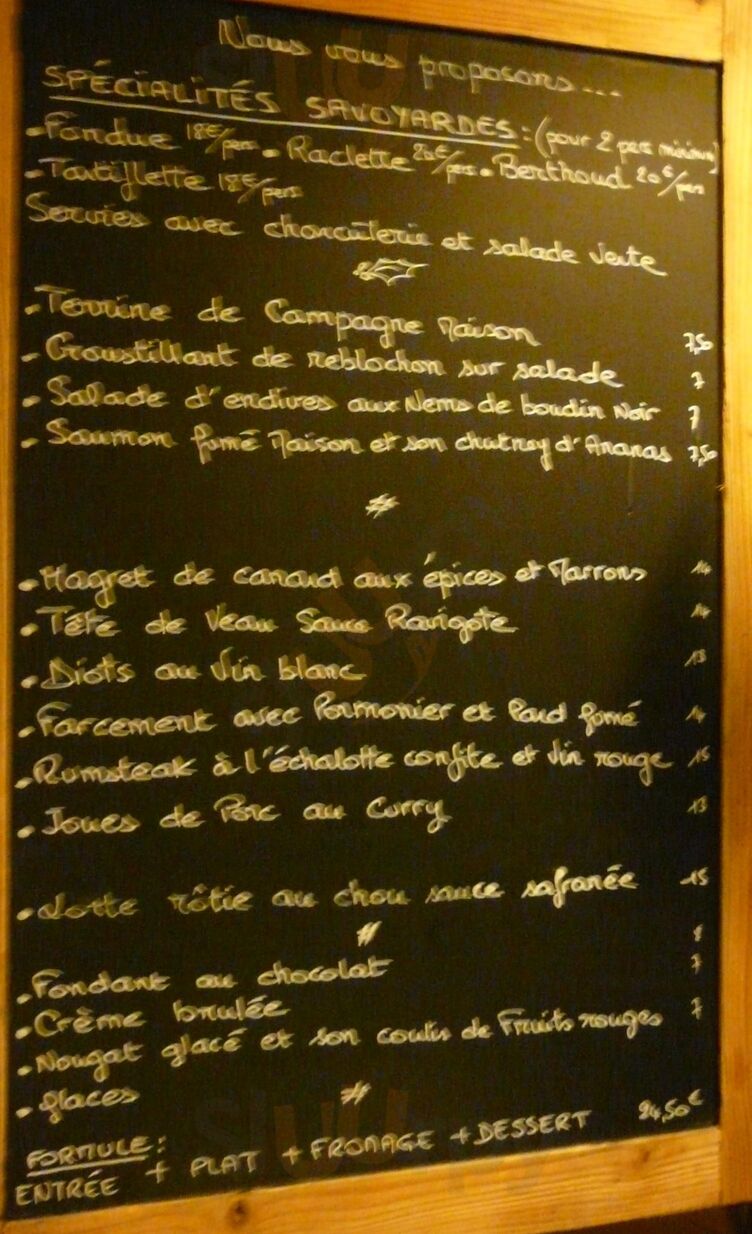 Nous vous proposons...
SPÉCIALITÉS SAVOYARDES : (pour 2 pers minimum)
• Fondue 18€/pers • Raclette 20€/pers • Berthoud 20€/pers
• Tartiflette 18€/pers
Servies avec charcuterie et salade verte
• Terrine de Campagne Maison 7,50
• Croustillant de reblochon sur salade 7
• Salade d'endives aux Nems de boudin Noir 7
• Saumon fumé Maison et son chutney d'Ananas 7,50
#
• Magret de canard aux épices et Marrons 14
• Tête de Veau Sauce Ravigote 14
• Diots au Vin blanc 13
• Farcement avec Pormonier et Lard fumé 14
• Rumsteak à l'échalotte confite et Vin rouge 15
• Joues de Porc au Curry 13
• Lotte rôtie au chou sauce safranée 15
#
• Fondant au chocolat 8
• Crème brulée 7
• Nougat glacé et son coulis de Fruits rouges 7
• glaces
#
FORMULE :
ENTRÉE + PLAT + FROMAGE + DESSERT 24,50€